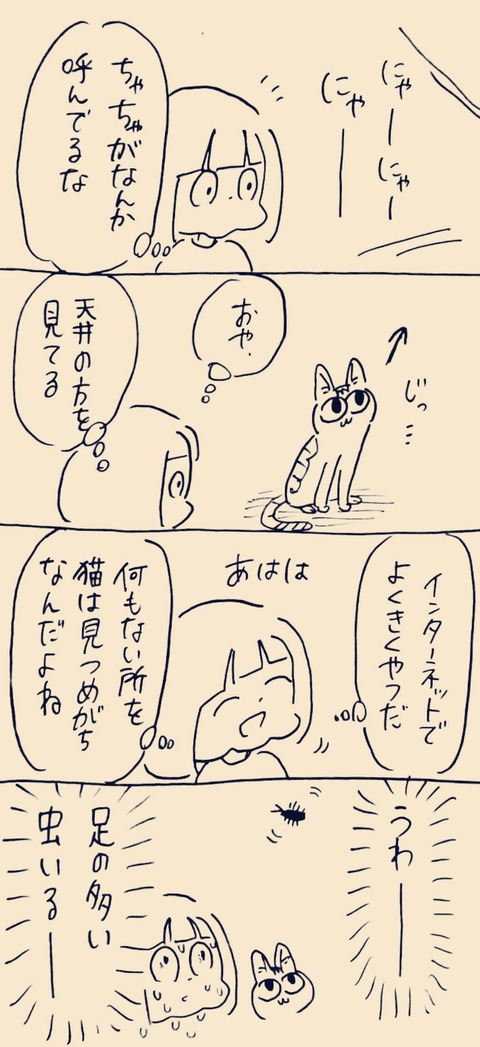 にゃーにゃー
にゃー
ちゃちゃがなんか
呼んでるな
じっ…
おや.
天井の方を
見てる
インターネットで
よくきくやつだ
あはは
何もない所を
猫は見つめがち
なんだよね
うわー
足の多い
虫いるー